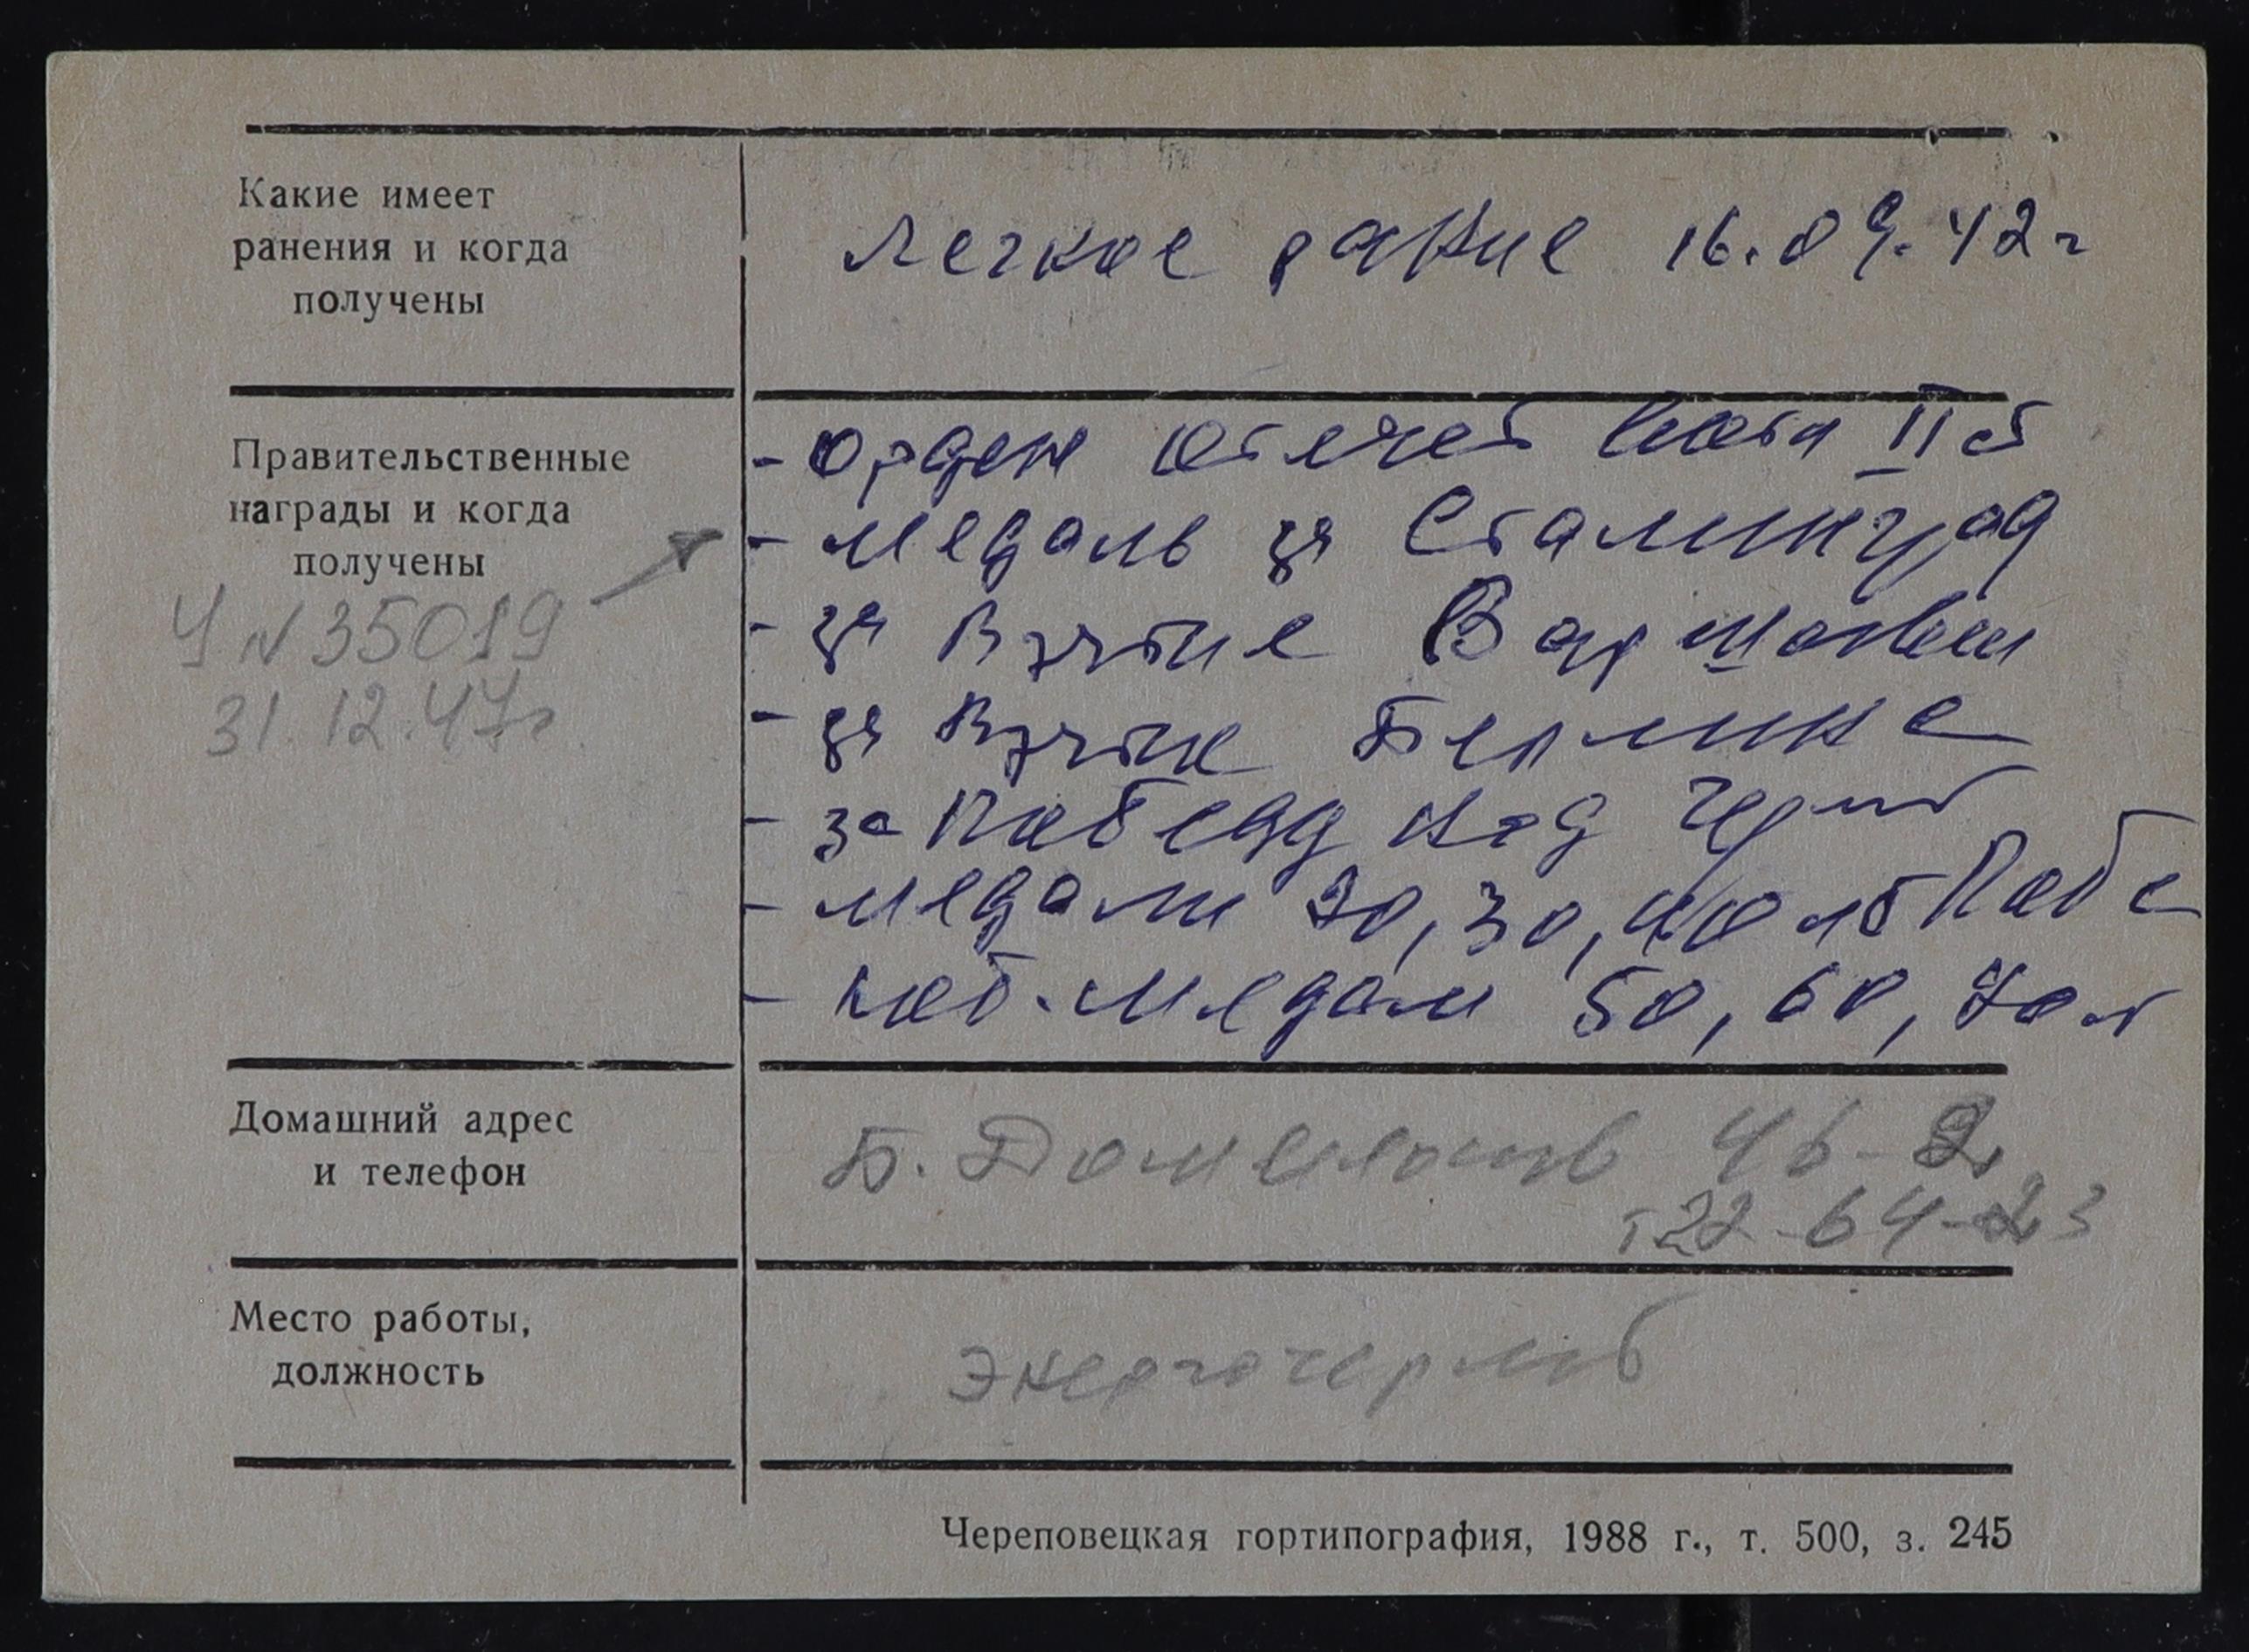 Какие имеет
ранения и когда
получены
Легкое рание 16.09.42 г
Правительственные
награды и когда
получены
У N 35019
31.12.47г
- Орден Отечест войны II ст
- медаль за Сталинград
- за взятие Варшавы
- за взятие Берлина
- за победу над Герм
- медали 20, 30, 40 лет Побе
- юб. медали 50, 60, 70 л
Домашний адрес
и телефон
Б. Доменщиков 46-2
т 22-64-23
Место работы,
должность
Энергочермет
Череповецкая гортипография, 1988 г., т. 500, з. 245